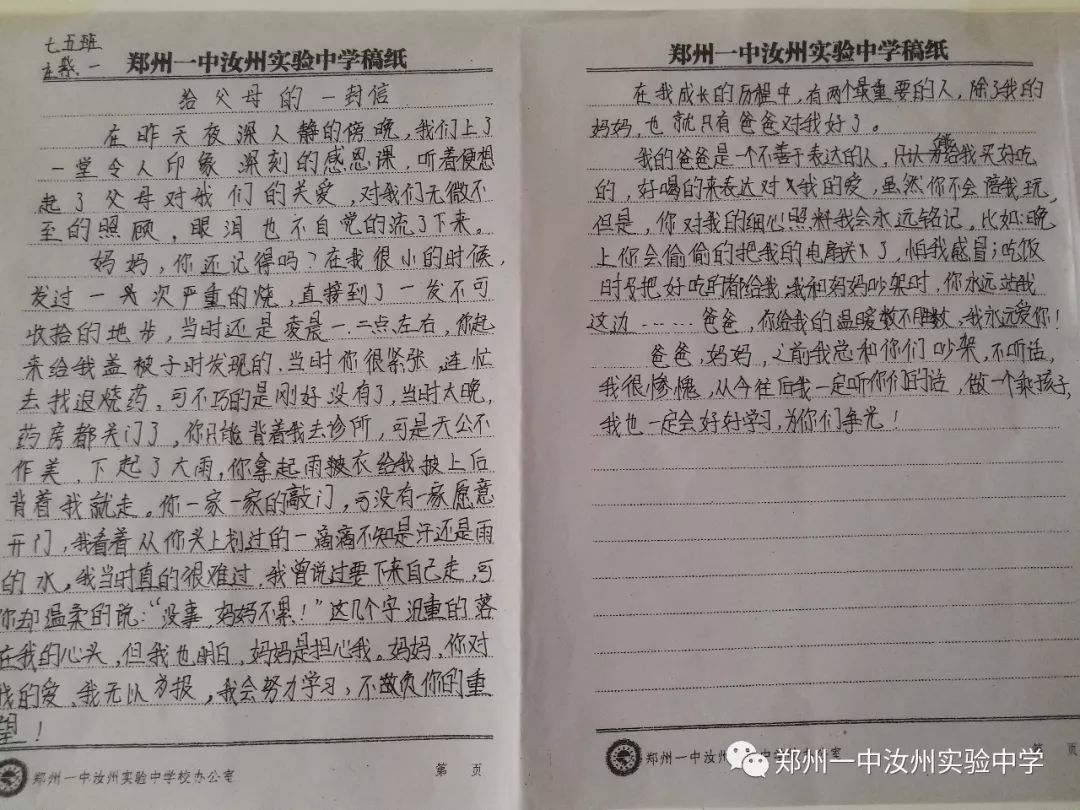 七五班
郑州一中汝州实验中学稿纸
给父母的一封信
在昨天夜深人静的傍晚，我们上了
一堂令人印象深刻的感恩课，听着便想
起了父母对我们的关爱，对我们无微不
至的照顾，眼泪也不自觉的流了下来。
妈妈，你还记得吗？在我很小的时候，
发过一次严重的烧，直接到了一发不可
收拾的地步，当时还是凌晨一、二点左右，你起
来给我盖被子时发现的，当时你很紧张，连忙
去找退烧药，可不巧的是刚好没有了，当时太晚，
药房都关门了，你只能背着我去诊所，可是天公不
作美，下起了大雨，你拿起雨衣给我披上后
背着我就走。你一家一家的敲门，可没有一家愿意
开门，我看着从你头上划过的一滴滴不知是汗还是雨
的水，我当时真的很难过，我曾说过要下来自己走，可
你却温柔的说：“没事，妈妈不累！”这几个字沉重的落
在我的心头，但我也明白，妈妈是担心我。妈妈，你对
我的爱，我无以为报，我会努力学习，不敢负你的重
望！
郑州一中汝州实验中学校办公室
第 页
郑州一中汝州实验中学稿纸
在我成长的历程中，有两个最重要的人，除了我的
妈妈，也就只有爸爸对我好了。
我的爸爸是一个不善于表达的人，只认为能给我买好吃
的，好喝的来表达对我的爱，虽然你不会陪我玩，
但是，你对我的细心照料我会永远铭记。比如：晚
上你会偷偷的把我的电扇关了，怕我感冒；吃饭
时反把好吃的都给我，我和妈妈吵架时，你永远站我
这边……爸爸，你给我的温暖数不胜数，我永远爱你！
爸爸，妈妈，之前我总和你们吵架，不听话，
我很惨愧，从今往后我一定听你们的话，做一个乖孩子，
我也一定会好好学习，为你们争光！
郑州一中汝州实验中学校办公室
第 页
郑州一中汝州实验中学